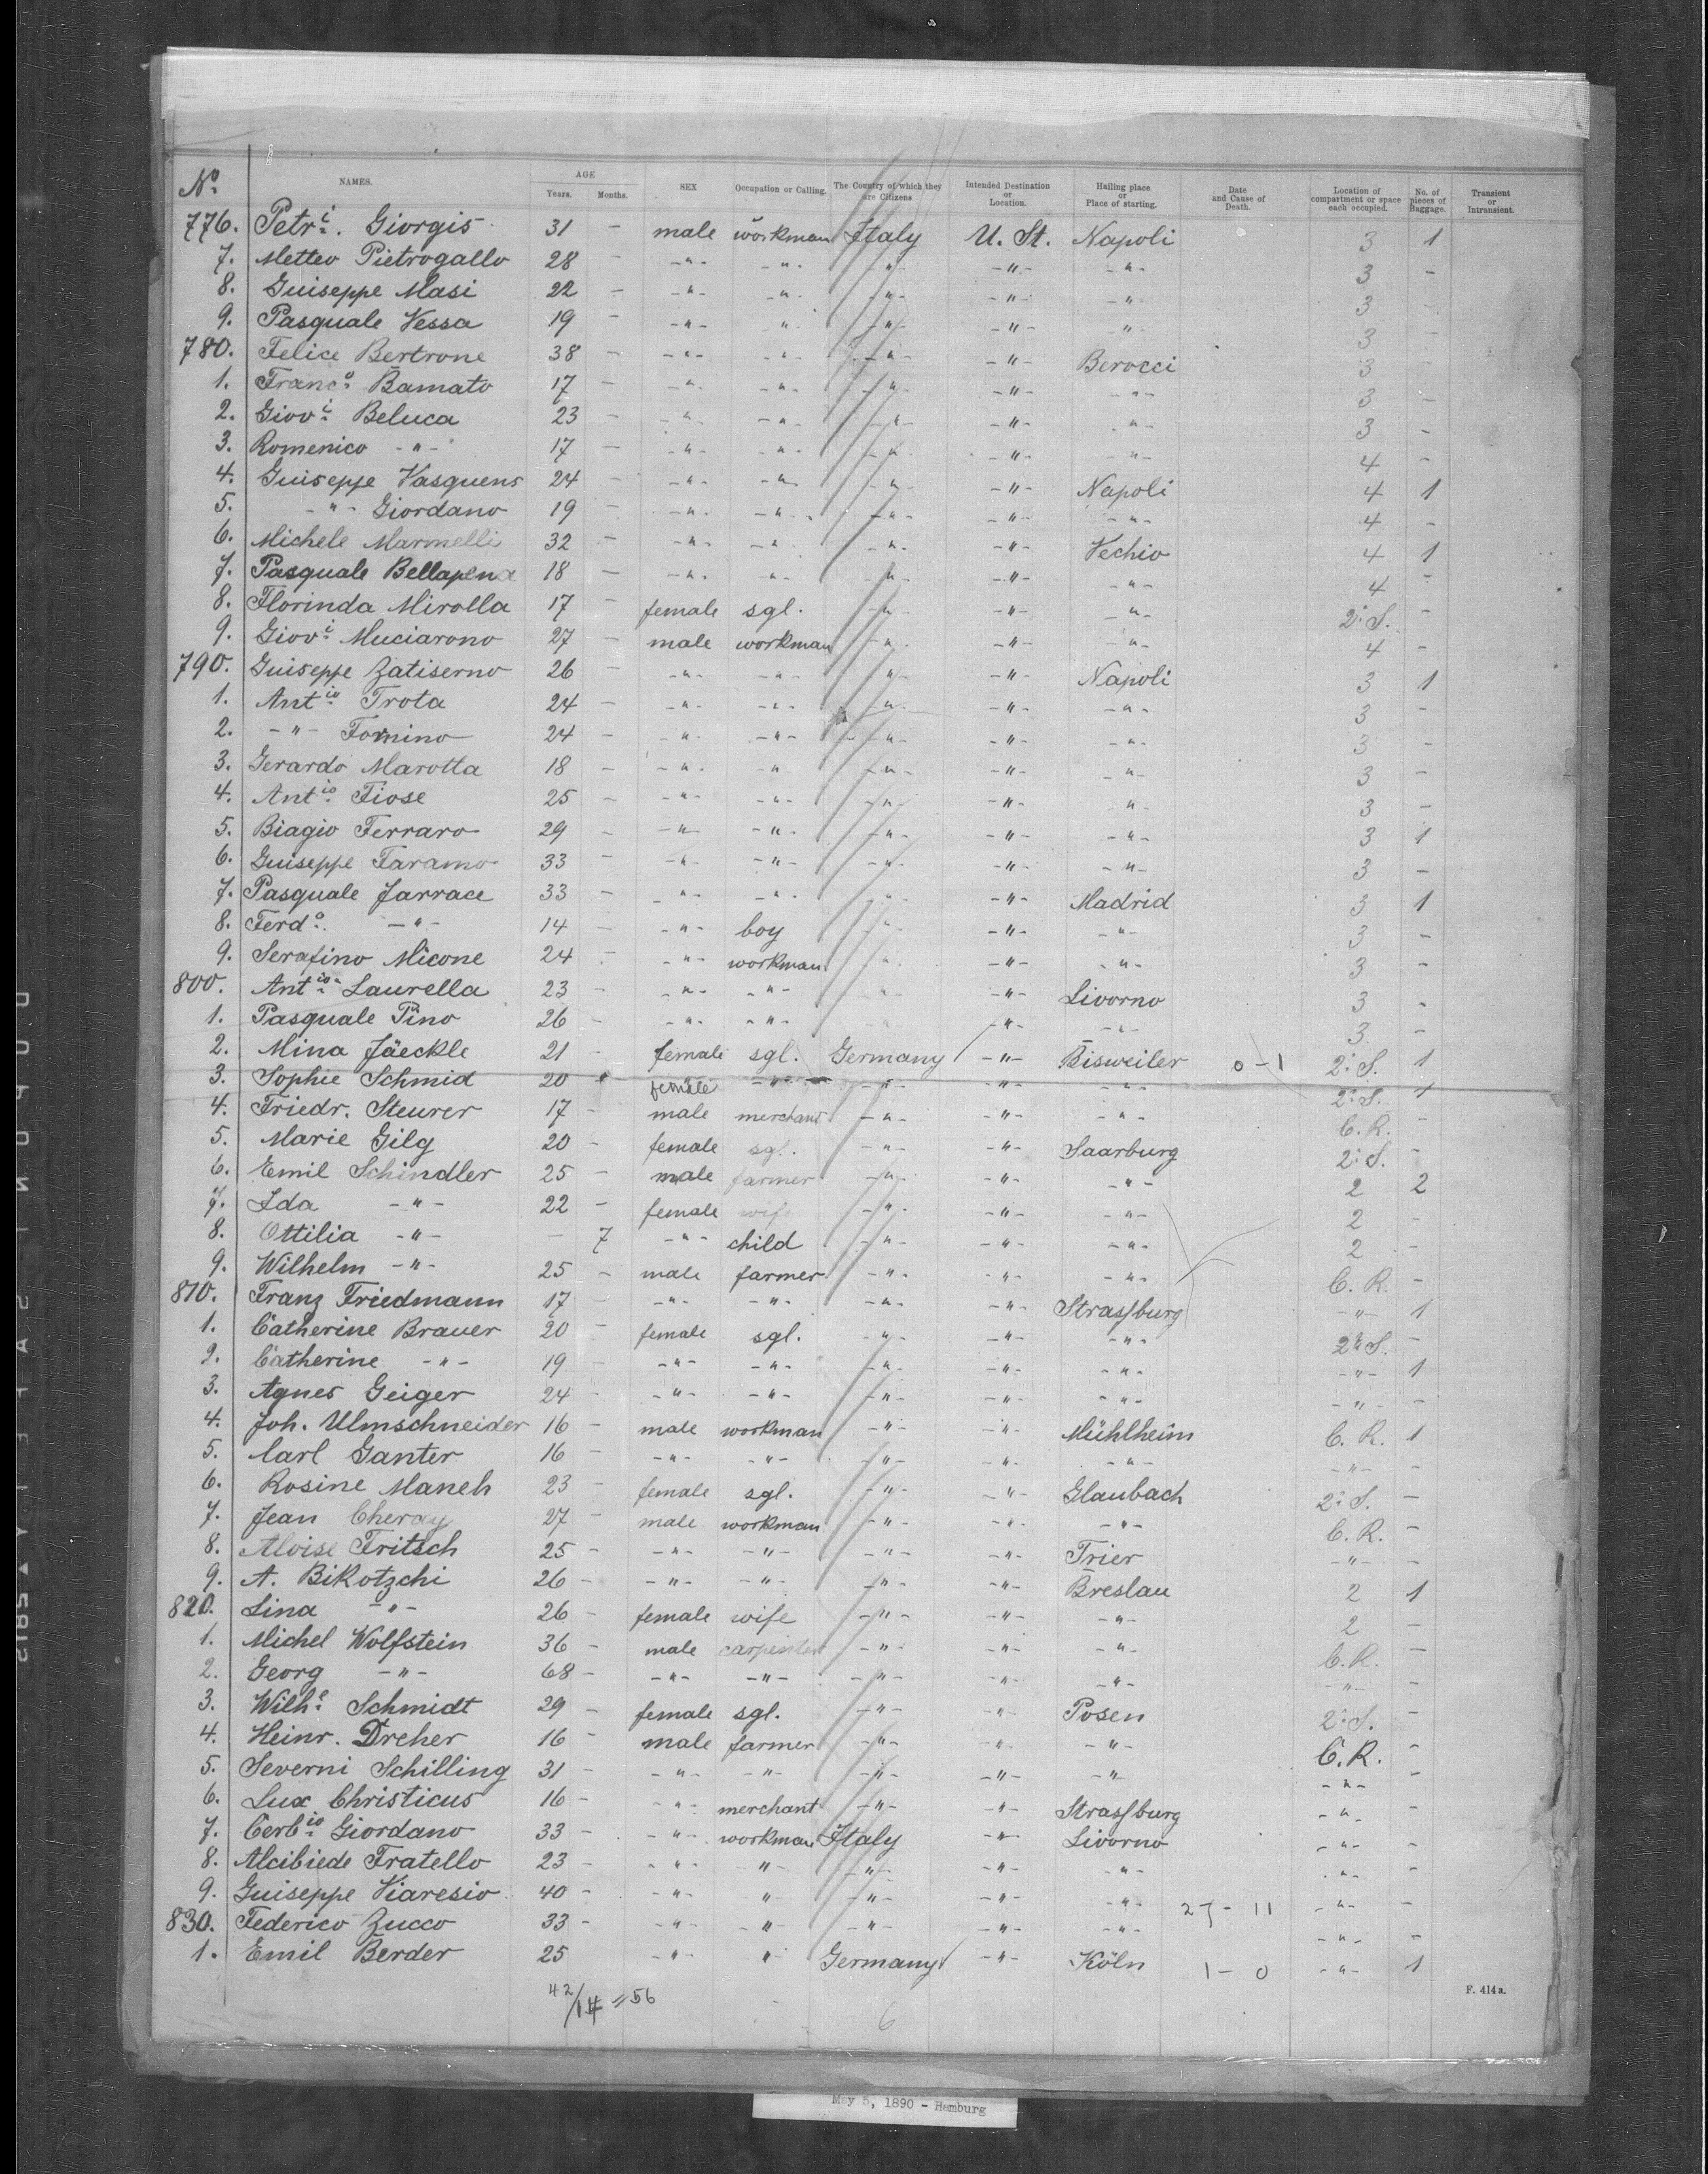 No. NAMES. AGE Years. Months. SEX Occupation or Calling. The Country of which they are Citizens Intended Destination or Location. Hailing place or Place of starting. Date and Cause of Death. Location of compartment or space each occupied. No. of pieces of Baggage. Transient or Intransient.
776. Petri. Giorgis 31 - male workman Italy U. St. Napoli 3 1
7. Metteo Pietrogallo 28 - -"- -"- -"- -"- -"- 3 -
8. Guiseppe Masi 22 - -"- -"- -"- -"- -"- 3
9. Pasquale Vessa 19 - -"- " -"- -"- " 3 -
780. Felice Bertrone 38 - -"- -"- -"- -"- Berocci 3 -
1. Franco. Bamato 17 - -"- -"- -"- -"- -"- 3 -
2. Giovi. Beluca 23 - -"- -"- -"- -"- -"- 3 -
3. Romenico -"- 17 - -"- -"- -"- -"- -"- 4 -
4. Guiseppe Vasquens 24 - -"- -"- -"- -"- Napoli 4 1
5. -"- Giordano 19 - -"- -"- -"- -"- -"- 4 -
6. Michele Maronelli 32 - -"- -"- -"- -"- Vechio 4 1
7. Pasquale Bellapena 18 - -"- -"- -"- -"- -"- 4 -
8. Florinda Mirolla 17 - female sgl. -"- -"- -"- 2. S. -
9. Giovi. Muciarono 27 - male workman -"- -"- -"- 4 -
790. Guiseppe Zatiserno 26 - -"- -"- -"- -"- Napoli 3 1
1. Antio. Trota 24 - -"- -"- -"- -"- -"- 3 -
2. -"- Fornino 24 - -"- -"- -"- -"- -"- 3 -
3. Gerardo Marotta 18 - -"- -"- -"- -"- -"- 3 -
4. Antio. Fiose 25 - -"- -"- -"- -"- -"- 3 -
5. Biagio Ferraro 29 - -"- -"- -"- -"- -"- 3 1
6. Guiseppe Taramo 33 - -"- -"- -"- -"- -"- 3 -
7. Pasquale Jarrace 33 - -"- -"- -"- -"- Madrid 3 1
8. Ferdo. -"- 14 - -"- boy -"- -"- -"- 3 -
9. Serafino Micone 24 - -"- workman -"- -"- -"- 3 -
800. Antio. Laurella 23 - -"- -"- -"- -"- Livorno 3 -
1. Pasquale Pino 26 - -"- -"- -"- -"- 3. -
2. Mina Jäeckle 21 - female sgl. Germany -"- Bisweiler 0-1 2. S. 1
3. Sophie Schmid 20 female -"- -"- -"- -"- 2. S. 1
4. Friedr. Steurer 17 - male merchant -"- -"- -"- C. R. -
5. Marie Gilg 20 - female sgl. -"- -"- Saarburg 2. S. -
6. Emil Schindler 25 - male farmer -"- -"- -"- 2 2
7. Ida -"- 22 - female wife -"- -"- -"- 2 -
8. Ottilia -"- - 7 -"- child -"- -"- -"- 2 -
9. Wilhelm -"- 25 - male farmer -"- -"- -"- C. R. -
810. Franz Friedmann 17 - -"- -"- -"- -"- Strassburg -"- 1
1. Catherine Brauer 20 - female sgl. -"- -"- -"- 2. S. -
2. Catherine -"- 19 - -"- -"- -"- -"- -"- -"- 1
3. Agnes Geiger 24 - -"- -"- -"- -"- -"- -"- -
4. Joh. Ulmschneider 16 - male workman -"- -"- Mühlheim C. R. 1
5. Carl Ganter 16 - -"- -"- -"- -"- -"- -"- -
6. Rosine Maneh 23 - female sgl. -"- -"- Glaubach 2. S. -
7. Jean Cheray 27 - male workman -"- -"- -"- C. R. -
8. Aloise Fritsch 25 - -"- -"- -"- -"- Trier -"- -
9. A. Bikotzchi 26 - -"- -"- -"- -"- Breslau 2 1
820. Lina -"- 26 - female wife -"- -"- -"- 2 -
1. Michel Wolfstein 36 - male carpenter -"- -"- -"- C. R. -
2. Georg -"- 68 - -"- -"- -"- -"- -"- -"- -
3. Wilhe. Schmidt 29 - female sgl. -"- -"- Posen 2. S. -
4. Heinr. Dreher 16 - male farmer -"- -"- -"- C. R. -
5. Severni Schilling 31 - -"- -"- -"- -"- -"- -"- -
6. Lux Christicus 16 - -"- merchant -"- -"- Strassburg -"- -
7. Cerbio. Giordano 33 - -"- workman Italy -"- Livorno -"- -
8. Alcibiede Fratello 23 - -"- " -"- -"- -"- -"- -
9. Guiseppe Viaresio 40 - -"- " -"- -"- -"- 27-11 -"- -
830. Federico Zucco 33 - -"- -"- -"- -"- -"- -"- -
1. Emil Berder 25 -"- " Germany -"- Köln 1-0 -"- 1
42/14 = 56
6
F. 414a.
May 5, 1890 - Hamburg